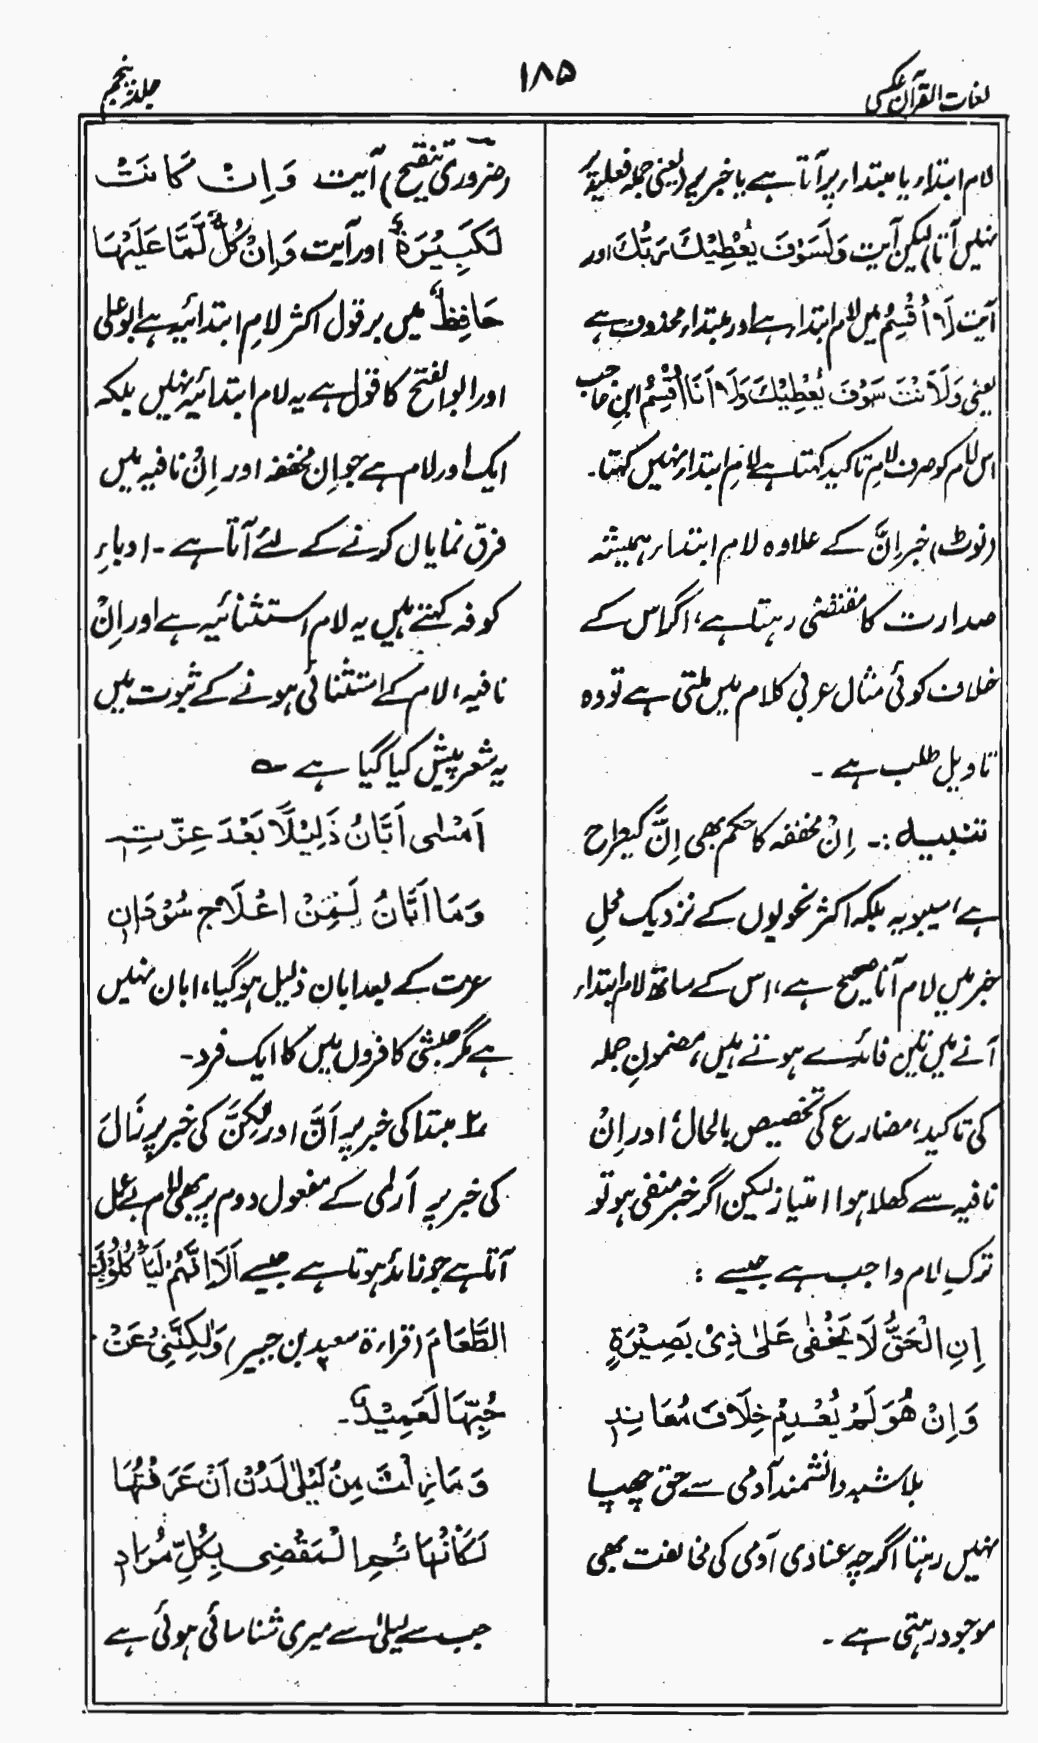 لغات القرآن عکسی
۱۸۵
جلد پنجم
لام ابتداء یا مبتداء پر آتا ہے یا خبر پر (یعنی جملہ فعلیہ پر
نہیں آتا) لیکن آیت وَلَسَوْفَ یُعْطِیْكَ رَبُّكَ اور
آیت لَاُ قْسِمُ میں لام ابتداء ہے اور مبتداء محذوف ہے
یعنی وَلَاَنْتَ سَوْفَ یُعْطِیْكَ وَلَاَ نَا اُقْسِمُ ابن حاجب
اس لام کو صرف لامِ تاکید کہتا ہے لامِ ابتداء نہیں کہتا۔
(نوٹ) خبر اِنَّ کے علاوہ لامِ ابتداء ہمیشہ
صدارت کا مقتضی رہتا ہے، اگر اس کے
خلاف کوئی مثال عربی کلام میں ملتی ہے تو وہ
تاویل طلب ہے۔
تنبیہ :۔ اِنْ مخففہ کا حکم بھی اِنَّ کیطرح
ہے، سیبویہ بلکہ اکثر نحویوں کے نزدیک محلِ
خبر میں لام آنا صحیح ہے، اس کے ساتھ لام ابتداء
آنے میں تین فائدے ہوتے ہیں، مضمونِ جملہ
کی تاکید، مضارع کی تخصیص بالحال، اور اِنْ
نافیہ سے کھلا ہوا امتیاز لیکن اگر خبر منفی ہو تو
ترکِ لام واجب ہے جیسے :
اِنِ الْحَقُّ لَا یَخْفٰی عَلٰی ذِیْ بَصِیْرَةٍ
وَاِنْ هُوَ لَمْ یُعْدِمْ خِلَافَ مُعَانِدٖ
بلا شبہ دانشمند آدمی سے حق چھپا
نہیں رہتا اگرچہ عنادی آدمی کی مخالفت بھی
موجود رہتی ہے۔
(ضروری تنقیح) آیت وَاِنْ کَانَتْ
لَکَبِیْرَةً اور آیت وَاِنْ کُلٌّ لَّمَّا عَلَیْهَا
حَافِظٌ میں بر قول اکثر لامِ ابتدائیہ ہے ابو علی
اور ابو الفتح کا قول ہے یہ لام ابتدائیہ نہیں بلکہ
ایک اور لام ہے جو اِن مخففہ اور اِنْ نافیہ میں
فرق نمایاں کرنے کے لئے آتا ہے۔ ادباءِ
کوفہ کہتے ہیں یہ لام استثنائیہ ہے اور اِنْ
نافیہ، لام کے استثنائی ہونے کے ثبوت میں
یہ شعر پیش کیا گیا ہے ؎
اَمْسٰی اَبَانُ ذَلِیْلًا بَعْدَ عِزَّتِہٖ
وَمَا اَبَانُ لَمِنْ اَعْلَاجِ سُوْدَانِ
عزت کے بعد ابان ذلیل ہو گیا، ابان نہیں
ہے مگر حبشی کافروں میں کا ایک فرد۔
۲ مبتدا کی خبر پر اَنَّ اور لٰکِنَّ کی خبر پر زَالَ
کی خبر پر اَرٰی کے مفعول دوم پر بھی لام بے عمل
آتا ہے جو زائد ہوتا ہے جیسے اَلَا اَنَّهُمْ لَیَاْکُلُوْنَ
الطَّعَامَ (قراءۃ سعید بن جبیر) وَلٰکِنَّنِیْ عَنْ
حُبِّهَا لَعَمِیْدُ۔
وَمَا زِلْتُ مِنْ لَیْلٰی لَدُنْ اَنْ عَرَفْتُهَا
لَکَالْهَائِمِ الْمَقْضِی بِکُلِّ مُرَادٖ
جب سے لیلیٰ سے میری شناسائی ہوئی ہے